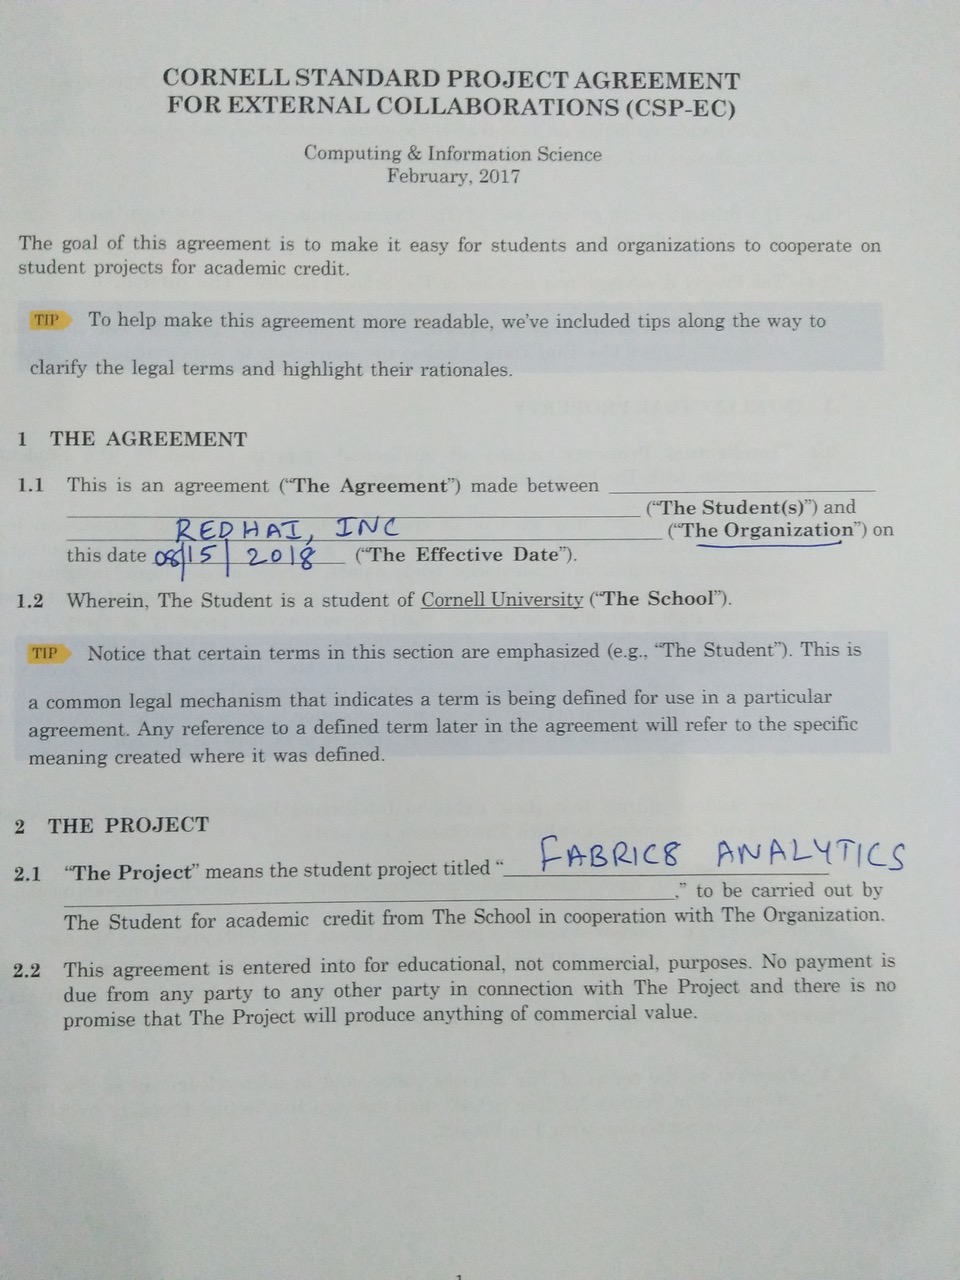 CORNELL STANDARD PROJECT AGREEMENT
FOR EXTERNAL COLLABORATIONS (CSP-EC)
Computing & Information Science
February, 2017
The goal of this agreement is to make it easy for students and organizations to cooperate on
student projects for academic credit.
TIP To help make this agreement more readable, we've included tips along the way to
clarify the legal terms and highlight their rationales.
1 THE AGREEMENT
1.1 This is an agreement ("The Agreement") made between
("The Student(s)") and
REDHAI, INC ("The Organization") on
this date 08|15|2018 ("The Effective Date").
1.2 Wherein, The Student is a student of Cornell University ("The School").
TIP Notice that certain terms in this section are emphasized (e.g., "The Student"). This is
a common legal mechanism that indicates a term is being defined for use in a particular
agreement. Any reference to a defined term later in the agreement will refer to the specific
meaning created where it was defined.
2 THE PROJECT
2.1 "The Project" means the student project titled "FABRIC8 ANALYTICS
," to be carried out by
The Student for academic credit from The School in cooperation with The Organization.
2.2 This agreement is entered into for educational, not commercial, purposes. No payment is
due from any party to any other party in connection with The Project and there is no
promise that The Project will produce anything of commercial value.